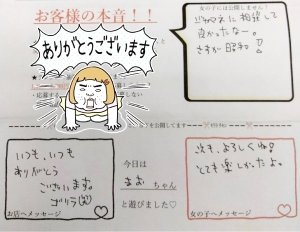 お客様の本音！！
女の子には公開しません！
ありがとうございます
良かったなー。
さすが昭和
を公開してます
いつも、いつも
ありがとう
ございます。
ゴリラ(笑)
お店へメッセージ
今日は
まおちゃん
と遊びました♡
次も、よろしくね!
とても楽しかったよ。
女の子へメッセージ